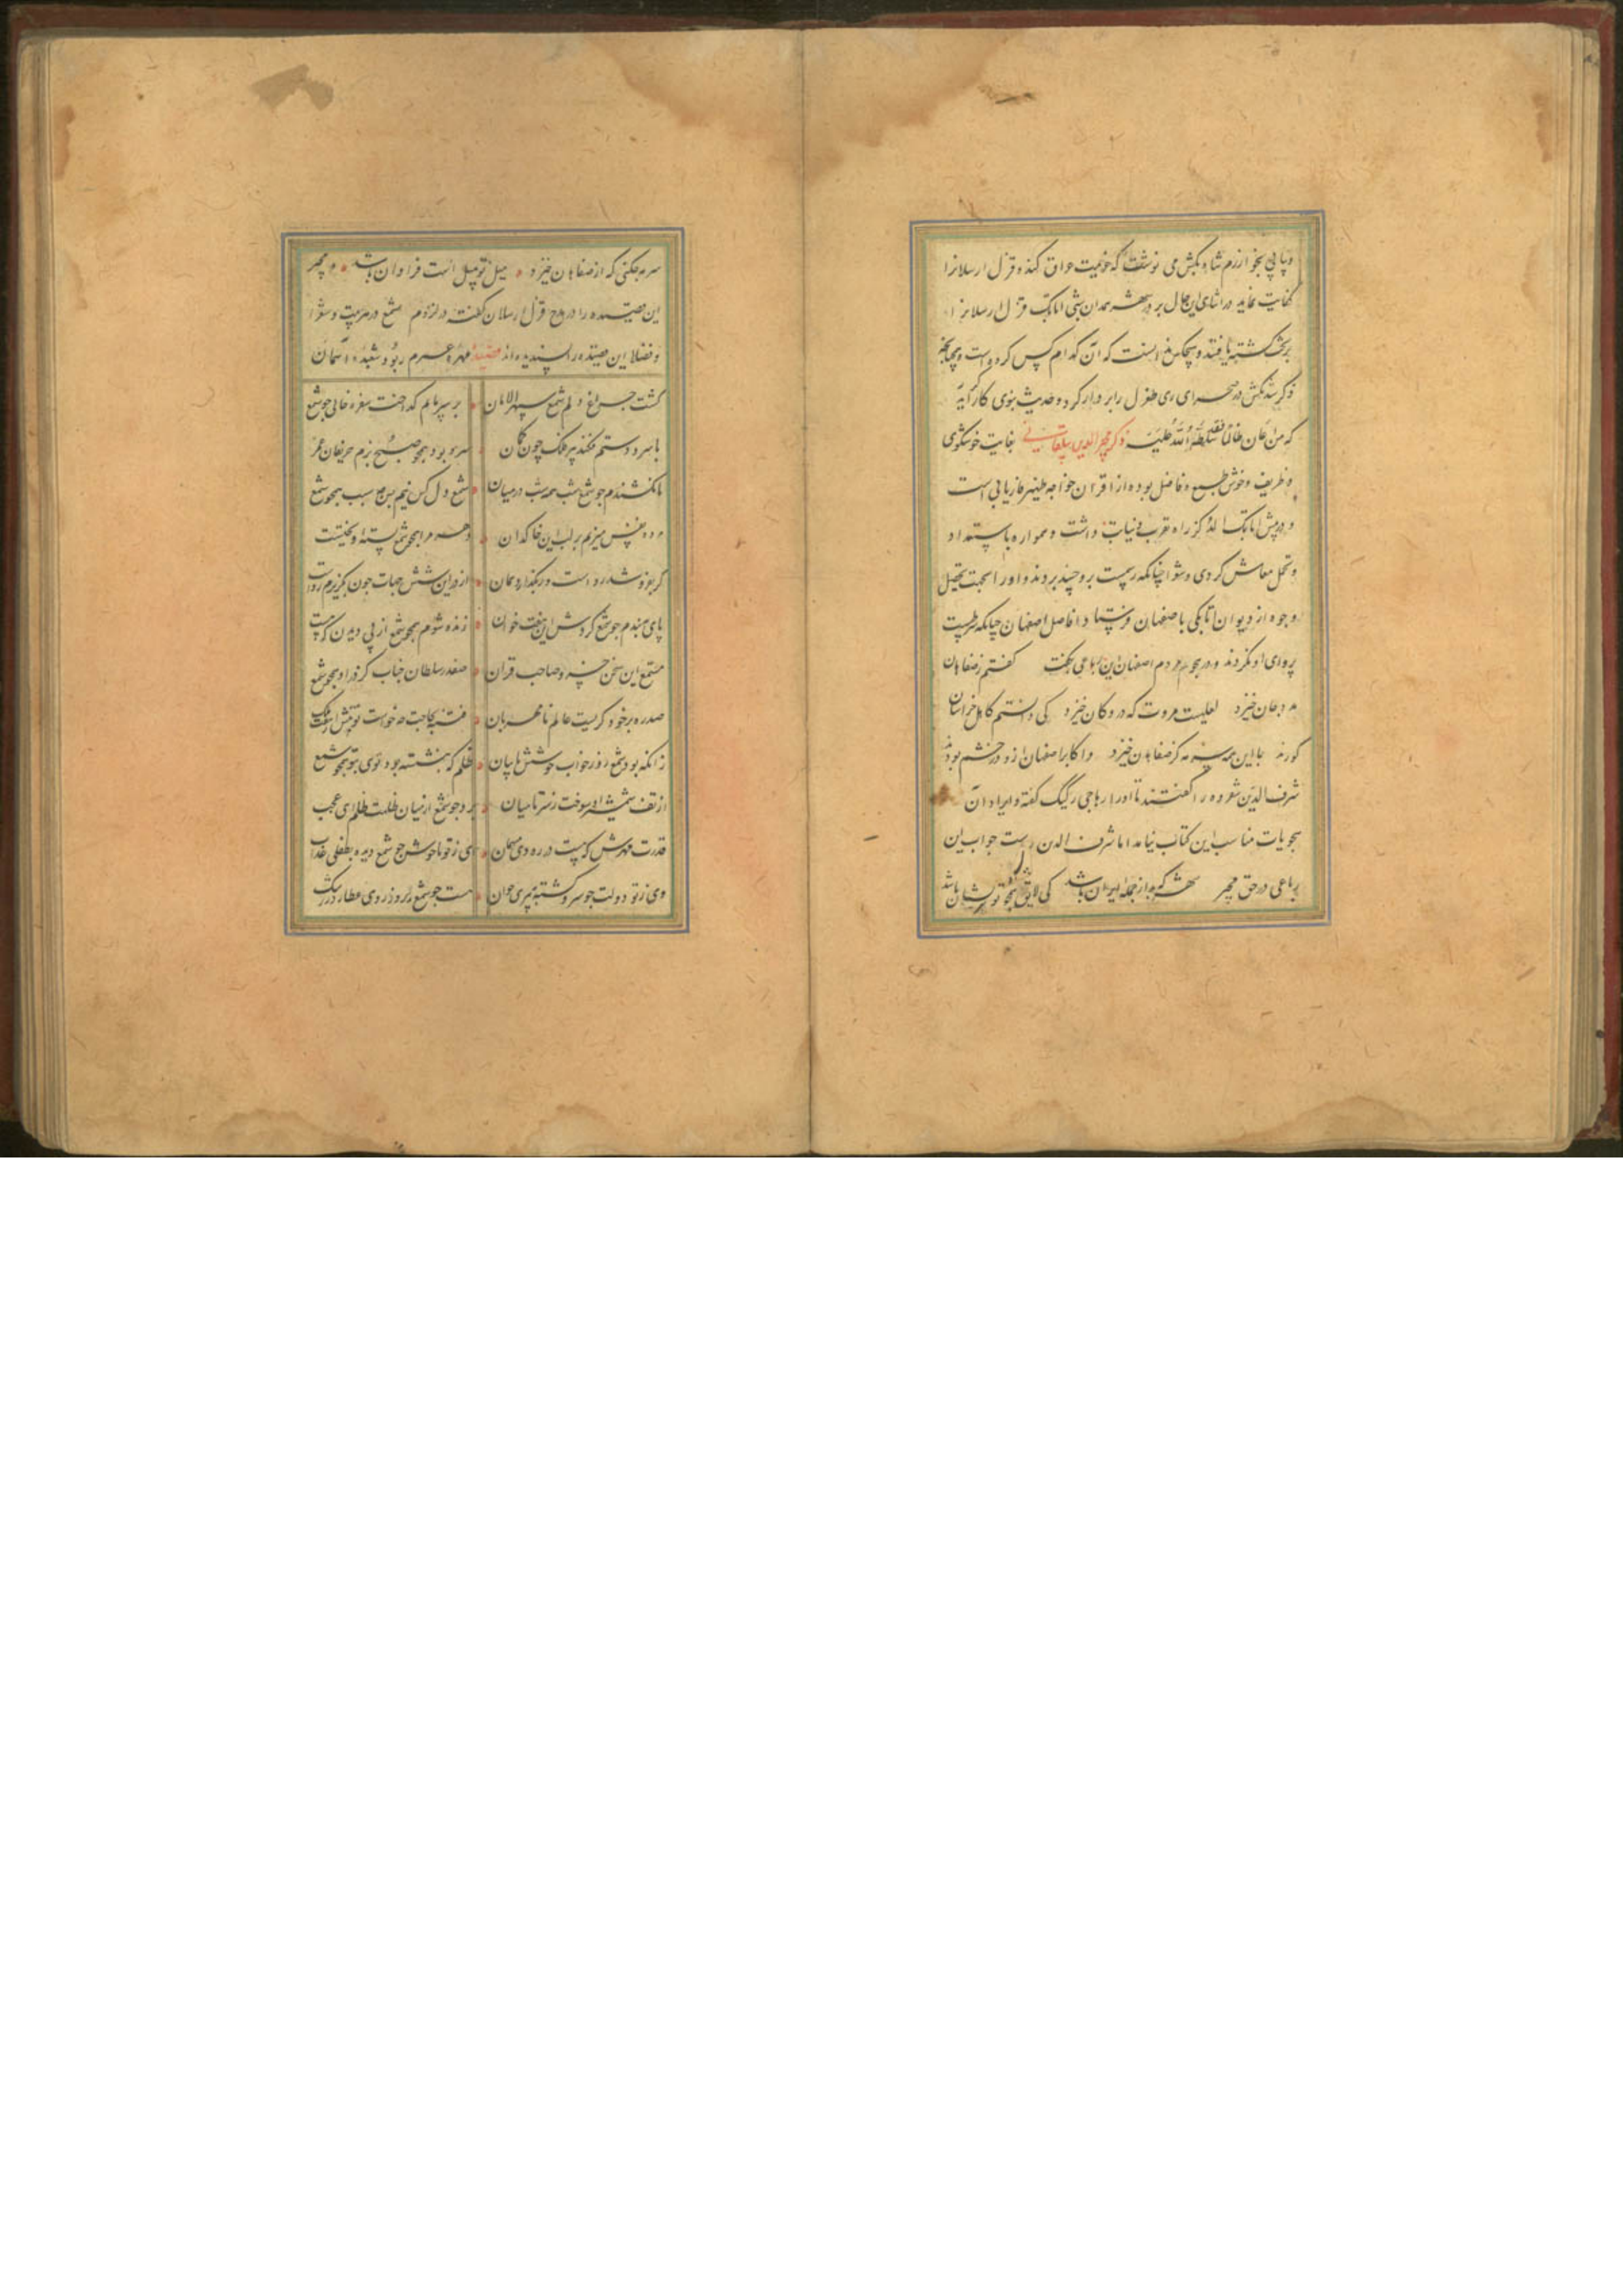 و پیاپی بخوارزم شاه تکش می نوشت که عزیمت عراق کند و قزل ارسلانرا
کفایت نماید در اثنای این حال بر در شهر همدان شبی اتابک قزل ارسلانرا
بر تخت کشته یافتند و هیچکس ندانست که آن کدام کس کرده است و چنانچه
ذکر شد تکش در صحرای ری طغرل را بر دار کرد و حدیث نبوی کار آید
که من اعان ظالما فقد سلطه الله علیه ذکر مجیر الدین بیلقانی بغایت خوشگوی
و ظریف و خوش طبع و فاضل بوده از اقران خواجه ظهیر فاریابی است
و در پیش اتابک ایلدکز راه تقرب و نیابت داشت و همواره با استعداد
و تجمل معاش کردی و شعرا چنانکه رسمست برو حسد بردند و او را بجهت تحصیل
وجوه از دیوان اتابکی باصفهان فرستاد افاضل اصفهان چنانکه شرطیست
پروای او نکردند و در هجو مردم اصفهان این رباعی بگفت گفتم ز صفاهان
مدد جان خیزد لعلیست مروت که در و کان خیزد کی دانستم کاهل صفاهان
کورند با این همه سرمه کز صفاهان خیزد و اکابر اصفهان ازو در خشم بودند
شرف الدین شفروه را گفتند تا او را رباعی رکیک گفته و ایراد آن
هجویات مناسب این کتاب نیامد اما شرف الدین راست جواب این
رباعی در حق مجیر شهری که به از جمله ایران باشد کی لایق هجو تو بدینسان باشد
سرمه چکنی که از صفاهان خیزد میل تو بمیل است فراوان باشد و مجیر
این قصیده را در مدح قزل ارسلان گفته در لزوم شمع در هر بیت و شعرا
و فضلا این قصیده را پسندیده اند قصیده مهره عمرم ربود شعبده آسمان
گشت چراغ دلم شمع سپهر الامان بر سر پایم که اجنت سفره خالی چو شمع
با سر و دستم فکند پیر فلک چون کمان سرو بود همچو صبح بزم حریفان عمر
تا بکشندم چو شمع شب همه شب در میان شمع دل کس نیم بس بچه سبب همچو شمع
مرده نفس میزنم بر لب این خاکدان دهر مرا همچو شمع بسته و بختیست
گر بودو ششدره است ره گذر دو کمان از در این شش جهات چون بگریزم رواست
پای بندم چو شمع گردش این هفت خوان زنده شوم همچو شمع از پی دیدن که هست
مستمع این سخن خسرو صاحب قران صفدر سلطان جناب کز در او همچو شمع
صدره بر خود گریست عالم نامهربان فتنه بحاجت چه خواست نوبتش از فلک
زانکه بود شمع روز خواب خوشش پاسبان ظلم که بنشسته بود توی بتو همچو شمع
از تف شمشیر او سوخت ز سر تا میان برد چو شمع از میان ظلمت ظلم ای عجب
قدرت مهرش که هست در ره دی مهمان ای ز تو ناخوش چو شمع دیده بطفلی عذاب
وی ز تو دولت چو سرو گشته بپیری جوان هست چو شمع بروز روی عطارد ز رشک